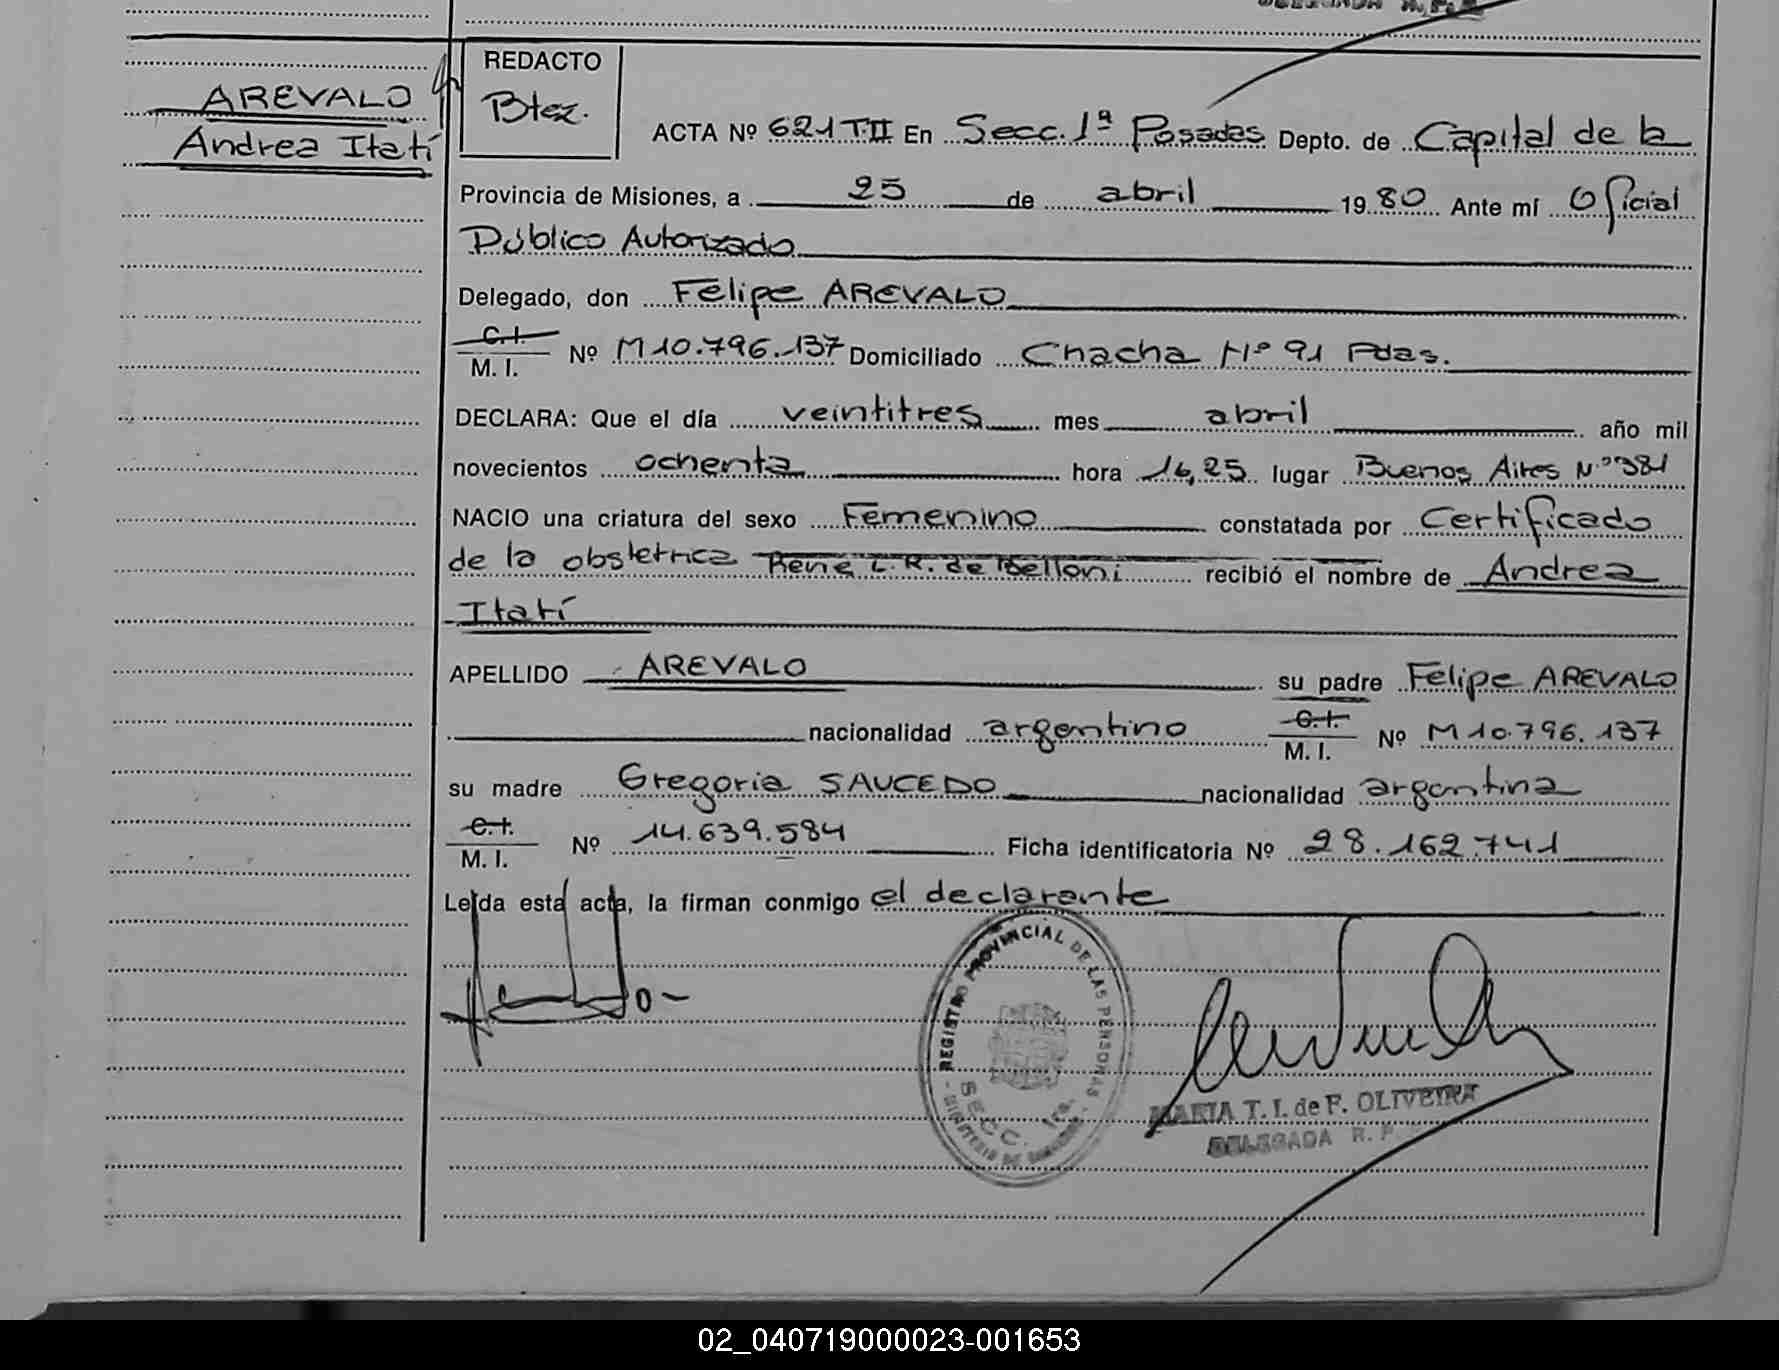 AREVALO
Andrea Itatí
REDACTO
Btez.
ACTA Nº 621 T.II En Secc. 1ª Posadas Depto. de Capital de la
Provincia de Misiones, a 25 de abril 1980 Ante mí Oficial
Público Autorizado
Delegado, don Felipe AREVALO
C.I.
M. I. Nº M10.796.137 Domiciliado Chacha Nº 91 Pdas.
DECLARA: Que el día veintitres mes abril año mil
novecientos ochenta hora 16,25 lugar Buenos Aires N.º 381
NACIO una criatura del sexo Femenino constatada por Certificado
de la obstetrica René L. R. de Belloni recibió el nombre de Andrea
Itatí
APELLIDO AREVALO su padre Felipe AREVALO
nacionalidad argentino C.I. M. I. Nº M10.796.137
su madre Gregoria SAUCEDO nacionalidad argentina
C.I.
M. I. Nº 14.639.584 Ficha identificatoria Nº 28.162.741
Leída esta acta, la firman conmigo el declarante
REGISTRO PROVINCIAL DE LAS PERSONAS
SECC. 1ra.
MARIA T. I. de F. OLIVEIRA
DELEGADA R. P.
02_040719000023-001653